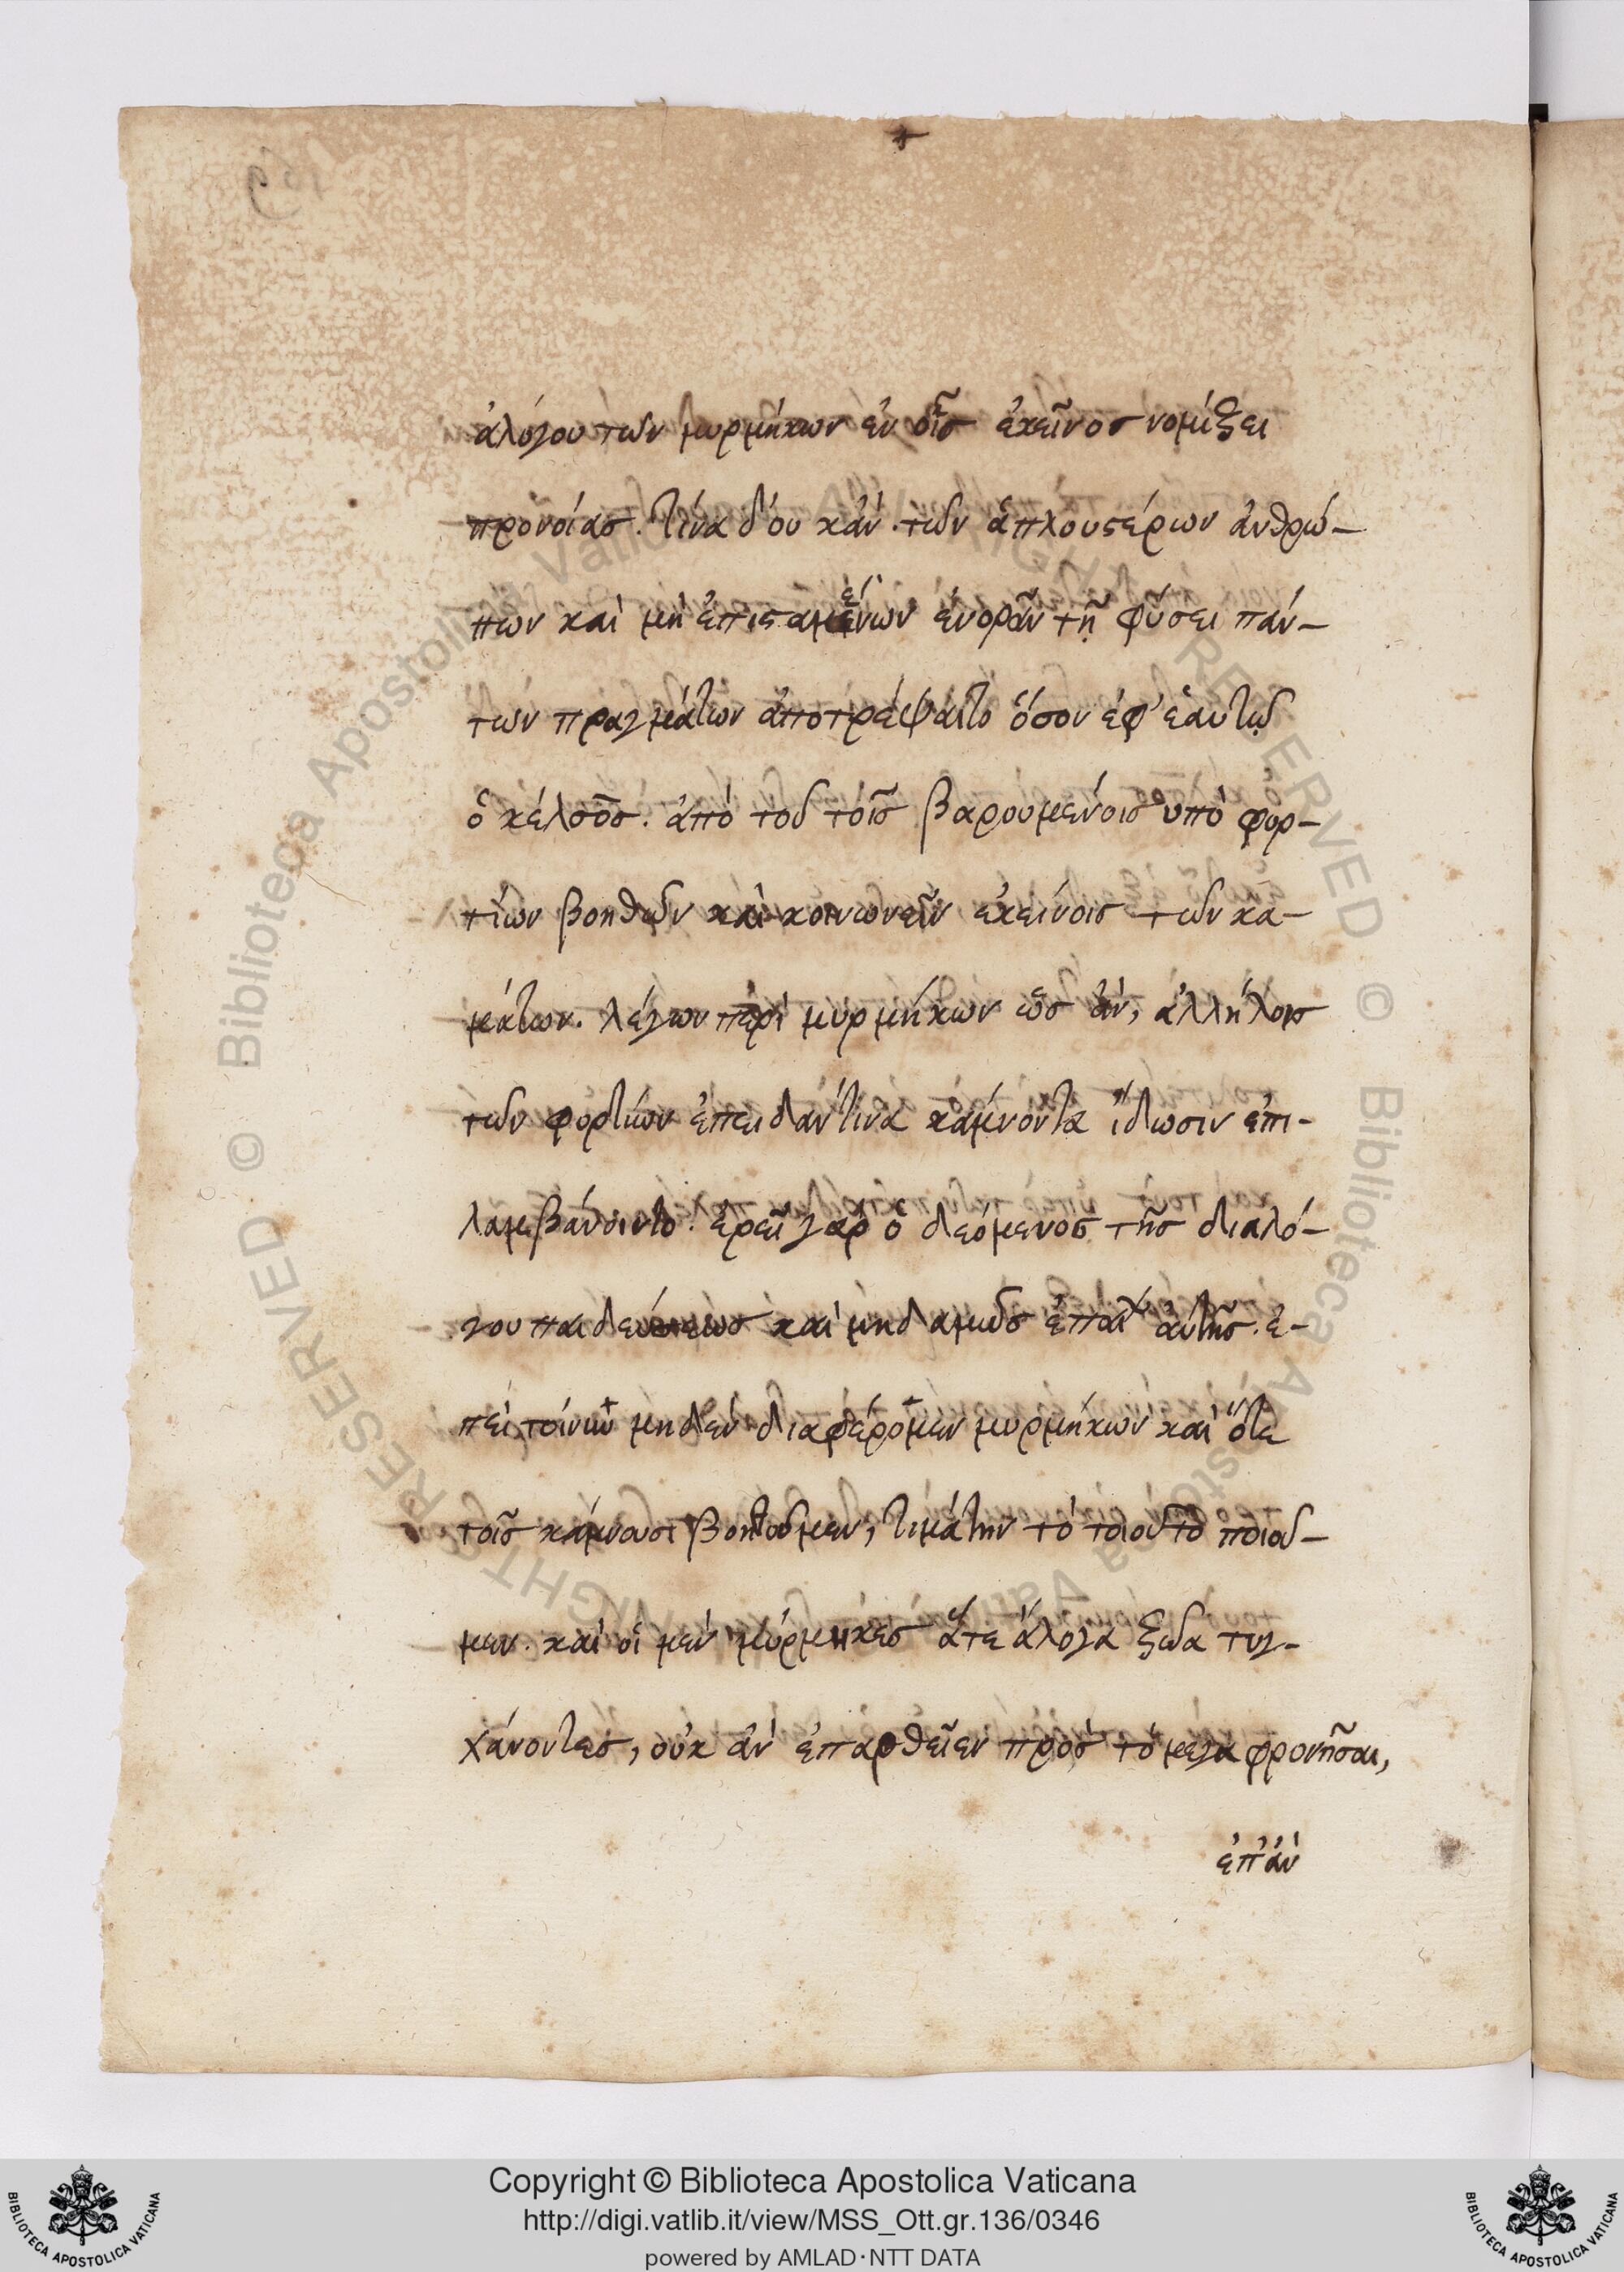 ἀλόγου τῶν μυρμήκων ἐν οἷς ἐκεῖνος νομίζει
προνοίας. τίνα δ' οὐ κἂν τῶν ἁπλουστέρων ἀνθρώ-
πων καὶ μὴ ἐπισταμένων ἐνορᾶν τῇ φύσει πάν-
των πραγμάτων ἀποτρέψαιτο ὅσον ἐφ' ἑαυτῷ
ὁ κέλσος. ἀπὸ τοῦ τοῖς βαρουμένοις ὑπὸ φορ-
τίων βοηθῶν καὶ κοινωνεῖν ἐκείνοις τῶν κα-
μάτων. λέγων περὶ μυρμήκων ὡς ἂν, ἀλλήλοις
τῶν φορτίων ἐπειδάν τινα κάμνοντα ἴδωσιν ἐπι-
λαμβάνοιντο. ἐρεῖ γὰρ ὁ δεόμενος τῆς διαλό-
γου παιδεύσεως καὶ μηδαμῶς ἐπαΐων αὐτῆς. ἐ-
πεὶ τοίνυν μηδὲν διαφέρομεν μυρμήκων καὶ ὅτε
τοῖς κάμνουσι βοηθοῦμεν, τί μάτην τὸ τοιοῦτο ποιοῦ-
μεν. καὶ οἱ μὲν μύρμηκες ἅτε ἄλογα ζῶα τυγ-
χάνοντες, οὐκ ἂν ἐπαρθεῖεν πρὸς τὸ μέγα φρονῆσαι,
ἐπἂν
Copyright © Biblioteca Apostolica Vaticana
http://digi.vatlib.it/view/MSS_Ott.gr.136/0346
powered by AMLAD·NTT DATA